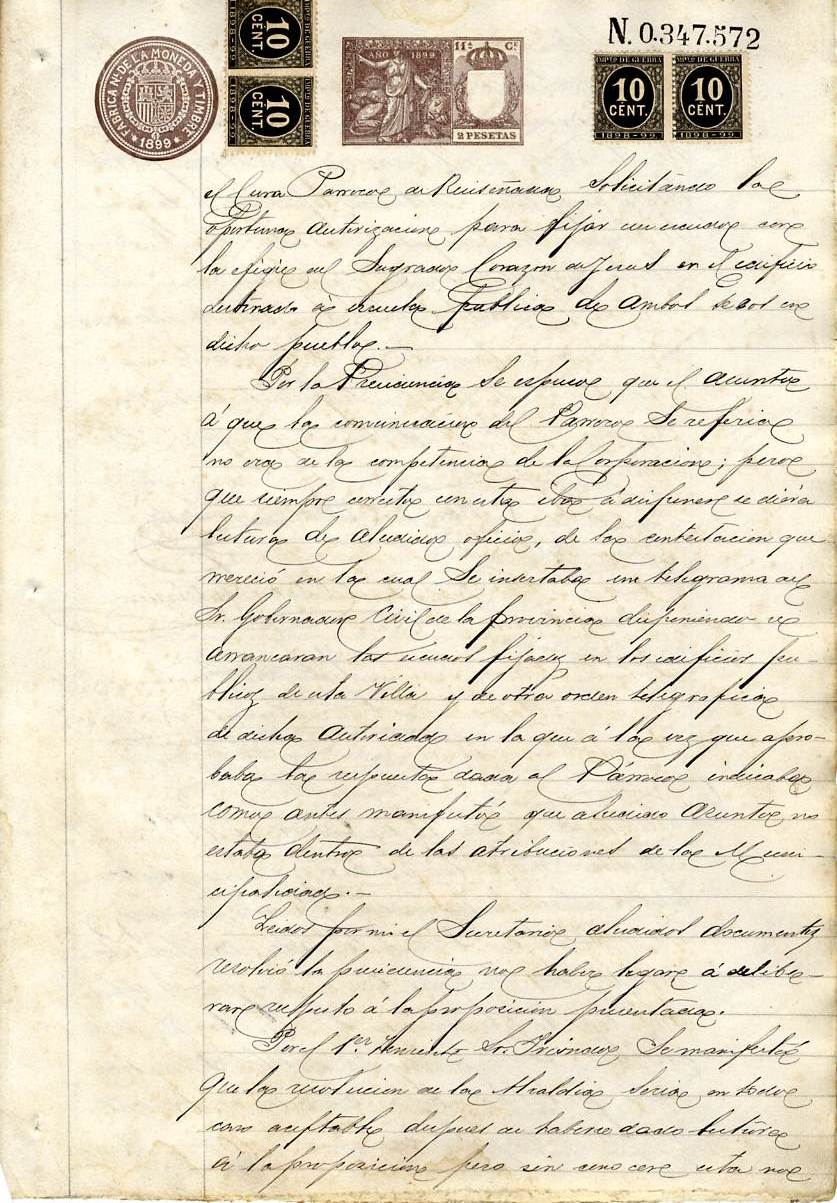 N. 0.347.572
FABRICA NAL DE LA MONEDA Y TIMBRE
1899
IMPTO DE GUERRA
10
CENT.
1898-99
IMPTO DE GUERRA
10
CENT.
1898-99
AÑO 1899
11ª Cª
2 PESETAS
IMPTO DE GUERRA
10
CENT.
1898-99
IMPTO DE GUERRA
10
CENT.
1898-99
el Cura Parroco de Ruiseñada solicitando la
oportuna autorizacion para fijar un escudo con
la efigie del Sagrado Corazon de Jesus en el edificio
destinado á escuela pública de ambos sexos en
dicho pueblo.—
Por la Presidencia se expuso que el asunto
á que la comunicacion del Parroco se referia
no era de la competencia de la Corporacion; pero
que siempre correcto en esta iba á disponer se diera
lectura de aludido oficio, de la contestacion que
mereció en la cual se insertaba un telegrama del
Sr. Gobernador Civil de la provincia disponiendo se
arrancaran los escudos fijados en los edificios pu-
blicos de esta Villa y de otra orden telegrafica
de dicha autoridad en la que á la vez que apro-
baba la respuesta dada al Párroco indicaba
como antes manifestó que aludido asunto no
estaba dentro de las atribuciones de la Muni-
cipalidad.—
Leidos por mi el Secretario aludidos documentos
resolvió la presidencia no haber lugar á delibe-
rar respecto á la proposicion presentada.
Por el 1.er Teniente Sr. se manifestó
que la resolucion de la Alcaldia seria en todo
caso aceptable despues de haberse dado lectura
á la proposicion pero sin conocer esta no